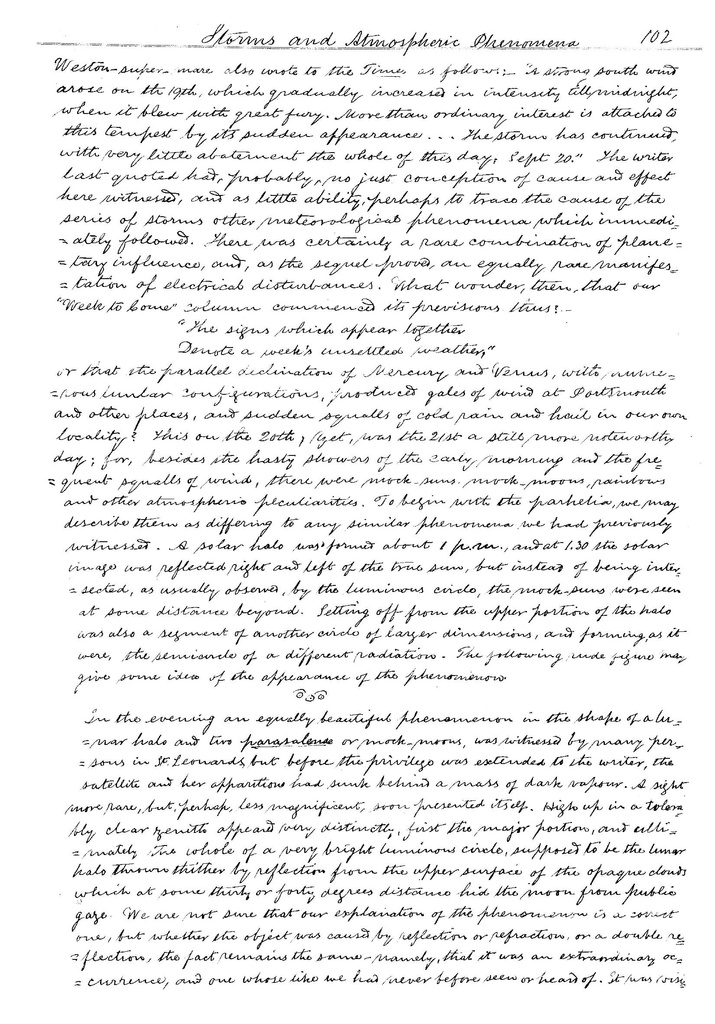 Storms and Atmospheric Phenomena 102
Weston-super-mare also wrote to the Times as follows:- "A strong south wind
arose on the 19th, which gradually increased in intensity till midnight,
when it blew with great fury. More than ordinary interest is attached to
this tempest by its sudden appearance... The storm has continued,
with very little abatement the whole of this day; Sept 20." The writer
last quoted had, probably, no just conception of cause and effect
here witnessed, and as little ability, perhaps to trace the cause of the
series of storms other meteorological phenomena which immedi-
=ately followed. There was certainly a rare combination of plane=
=tary influence, and, as the sequel proved, an equally rare manifes=
=tation of electrical disturbances. What wonder, then, that our
"Week to Come" column commenced its previsions thus:-
"The signs which appear together
Denote a week's unsettled weather,"
or that the parallel declination of Mercury and Venus, with nume=
=rous lunar configurations, produced gales of wind at Portsmouth
and other places, and sudden squalls of cold rain and hail in our own
locality? This on the 20th; yet, was the 21st a still more noteworthy
day; for, besides the hasty showers of the early morning and the fre=
=quent squalls of wind, there were mock-suns, mock-moons, rainbows
and other atmospheric peculiarities. To begin with the parhelia, we may
describe them as differing to any similar phenomena we had previously
witnessed. A solar halo was formed about 1 p.m., and at 1.30 the solar
image was reflected right and left of the true sun, but instead of being inter=
=sected, as usually observed, by the luminous circle, the mock-suns were seen
at some distance beyond. Setting off from the upper portion of the halo
was also a segment of another circle of larger dimensions, and forming, as it
were, the semicircle of a different radiation. The following rude figure may
give some idea of the appearance of the phenomenon
In the evening an equally beautiful phenomenon in the shape of a lu=
=nar halo and two parasalenae or mock-moons, was witnessed by many per=
=sons in St. Leonards, but before the privilege was extended to the writer, the
satellite and her apparitions had sunk behind a mass of dark vapour. A sight
more rare, but, perhaps, less magnificent, soon presented itself. High up in a tolera=
bly clear zenith appeared very distinctly, first the major portion, and ulti=
=mately the whole of a very bright luminous circle, supposed to be the lunar
halo thrown thither by reflection from the upper surface of the opaque clouds
which at some thirty or forty degrees distance hid the moon from public
gaze. We are not sure that our explanation of the phenomenon is a correct
one, but whether the object was caused by reflection or refraction, or a double re=
=flection, the fact remains the same - namely, that it was an extraordinary oc=
=currence, and one whose like we had never before seen or heard of. It was visi=